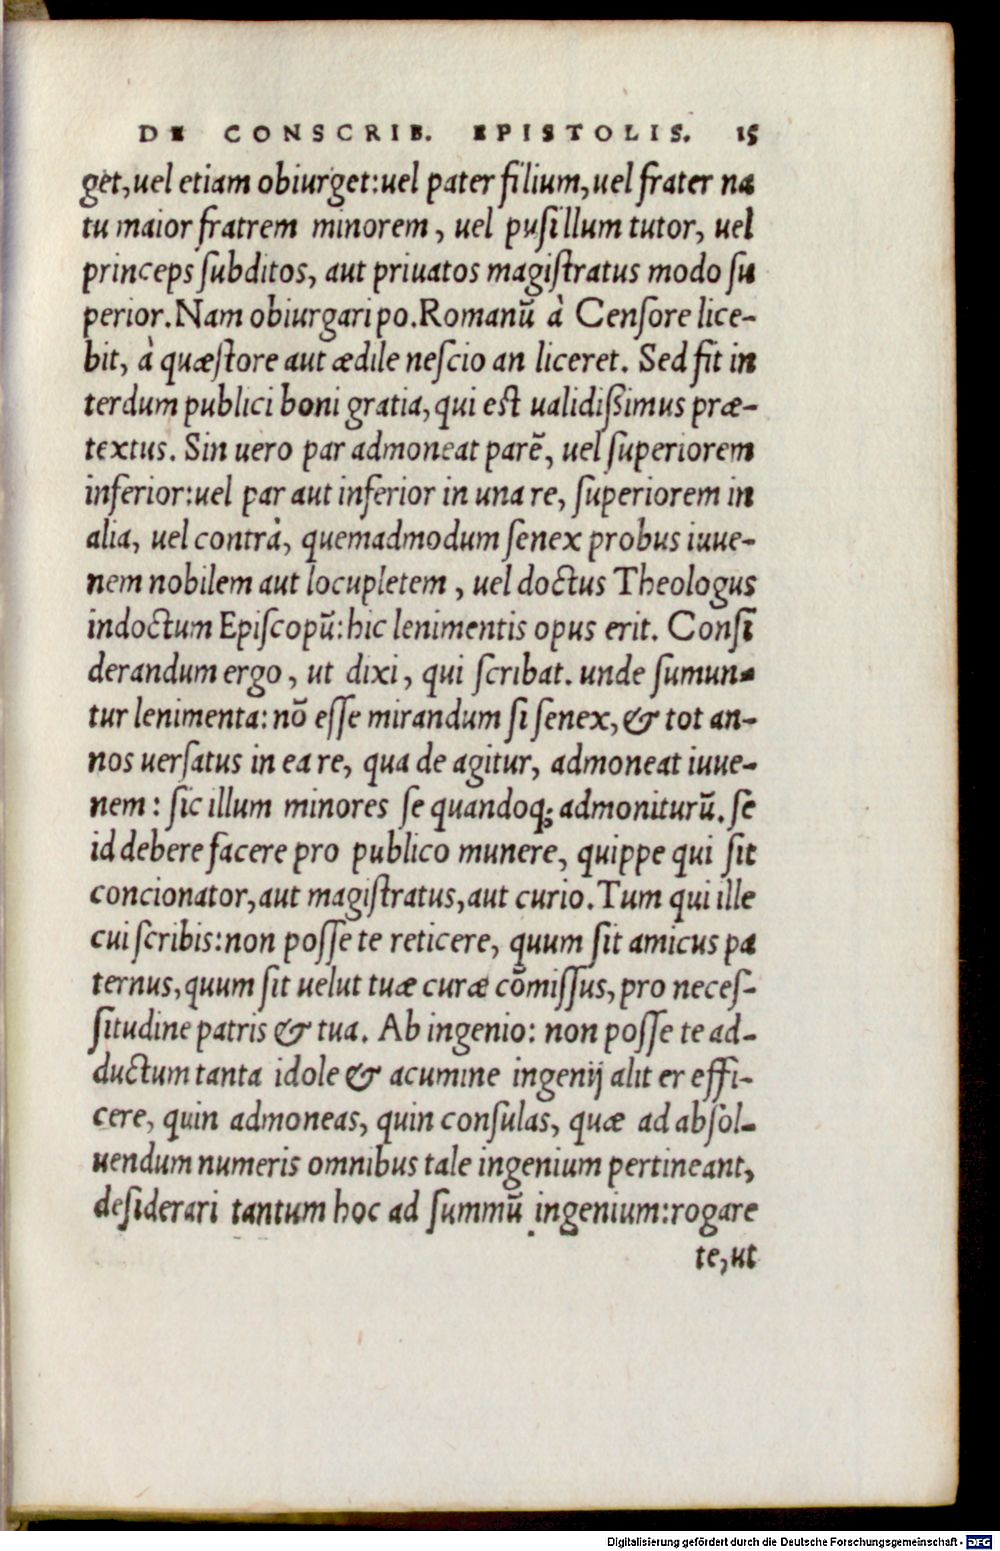 DE CONSCRIB. EPISTOLIS. 15
get, uel etiam obiurget: uel pater filium, uel frater na
tu maior fratrem minorem, uel pusillum tutor, uel
princeps subditos, aut priuatos magistratus modo su
perior. Nam obiurgari po. Romanū à Censore lice-
bit, à quæstore aut ædile nescio an liceret. Sed fit in
terdum publici boni gratia, qui est ualidißimus præ-
textus. Sin uero par admoneat parē, uel superiorem
inferior: uel par aut inferior in una re, superiorem in
alia, uel contrà, quemadmodum senex probus iuue-
nem nobilem aut locupletem, uel doctus Theologus
indoctum Episcopū: hic lenimentis opus erit. Consī
derandum ergo, ut dixi, qui scribat. unde sumun-
tur lenimenta: nō esse mirandum si senex, & tot an-
nos uersatus in ea re, qua de agitur, admoneat iuue-
nem: sic illum minores se quandoq; admoniturū. se
id debere facere pro publico munere, quippe qui sit
concionator, aut magistratus, aut curio. Tum qui ille
cui scribis: non posse te reticere, quum sit amicus pa
ternus, quum sit uelut tuæ curæ cōmissus, pro neces-
situdine patris & tua. Ab ingenio: non posse te ad-
ductum tanta idole & acumine ingenij alit er effi-
cere, quin admoneas, quin consulas, quæ ad absol-
uendum numeris omnibus tale ingenium pertineant,
desiderari tantum hoc ad summū ingenium: rogare
te, ut
Digitalisierung gefördert durch die Deutsche Forschungsgemeinschaft - DFG